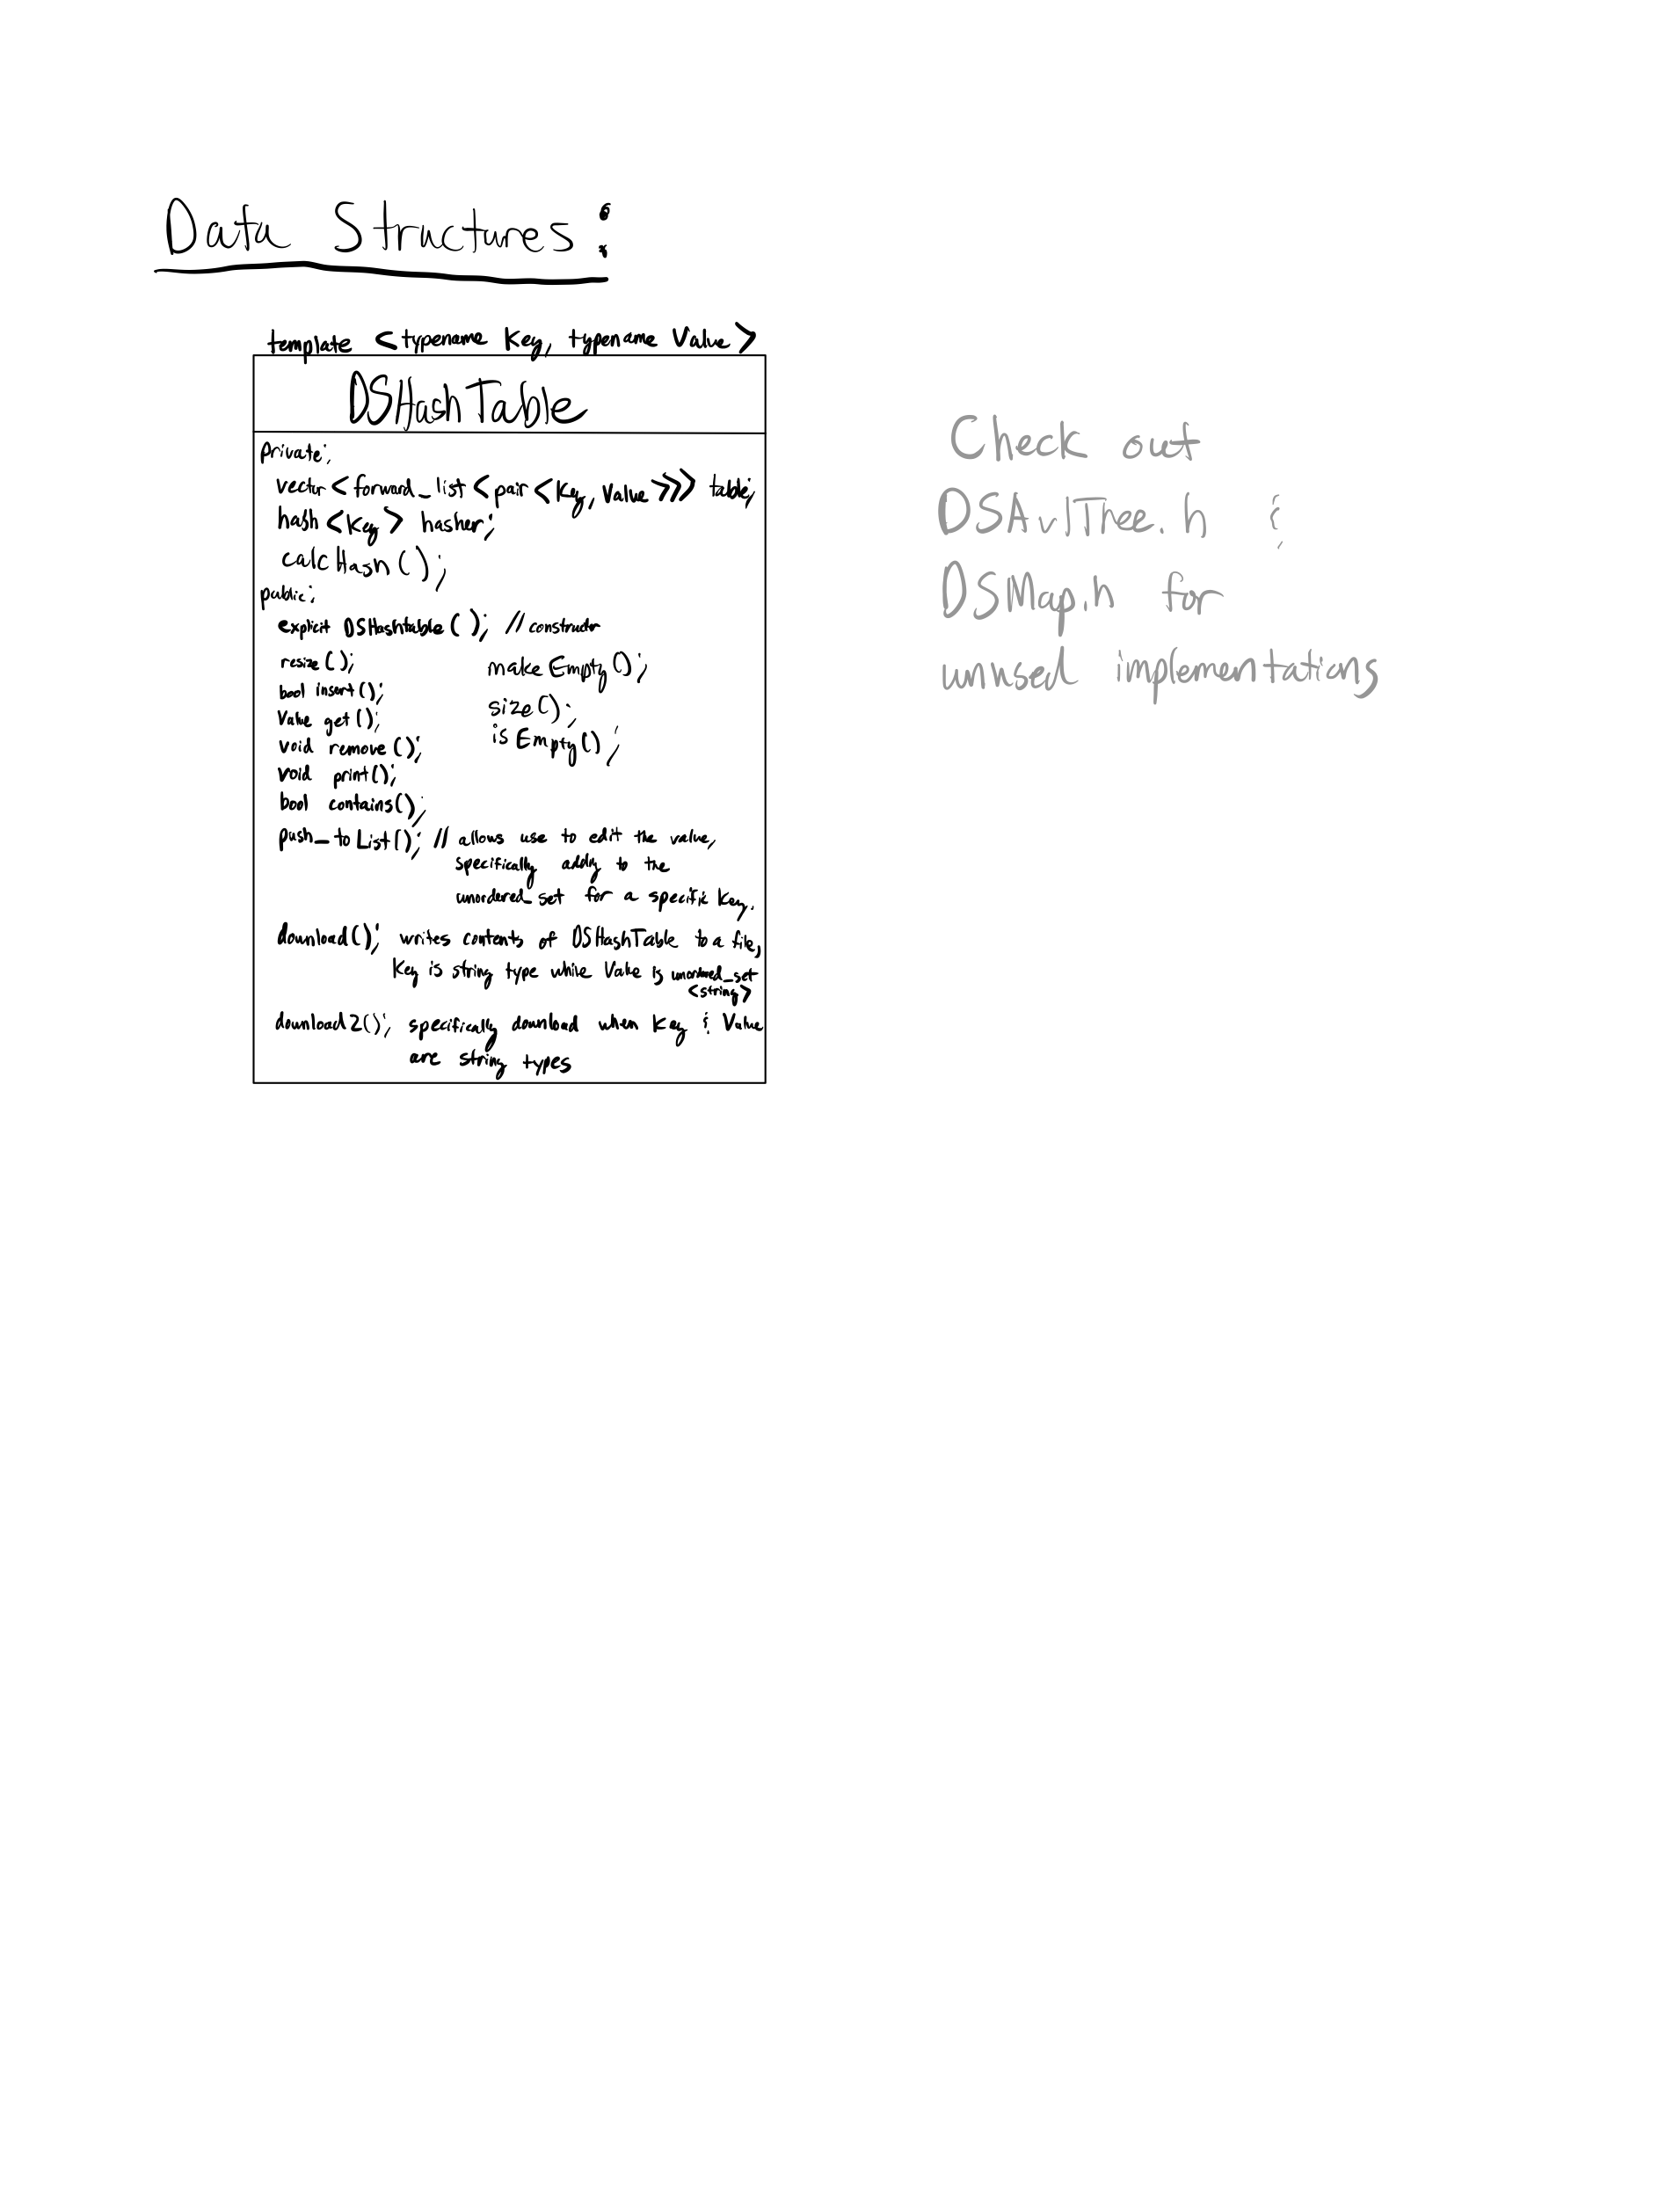 Data Structures:
template <typename Key, typename Value>
DSHashTable
Private:
vector<forward_list<pair<Key, Value>>> table;
hash<Key> hasher;
calcHash();
public:
explicit DSHashtable(); // constructor
resize();
bool insert();
Value get();
void remove();
void print();
bool contains();
makeEmpty();
size();
isEmpty();
push_to List(); // allows use to edit the value,
specifically adding to the
unordered_set for a specific key.
download(); writes contents of DSHashTable to a file,
Key is string type while Value is unordered_set
<string>
download2(); specifically download when Key & Value
are string types
Check out
DSAvlTree.h &
DSMap.h for
unused implementations